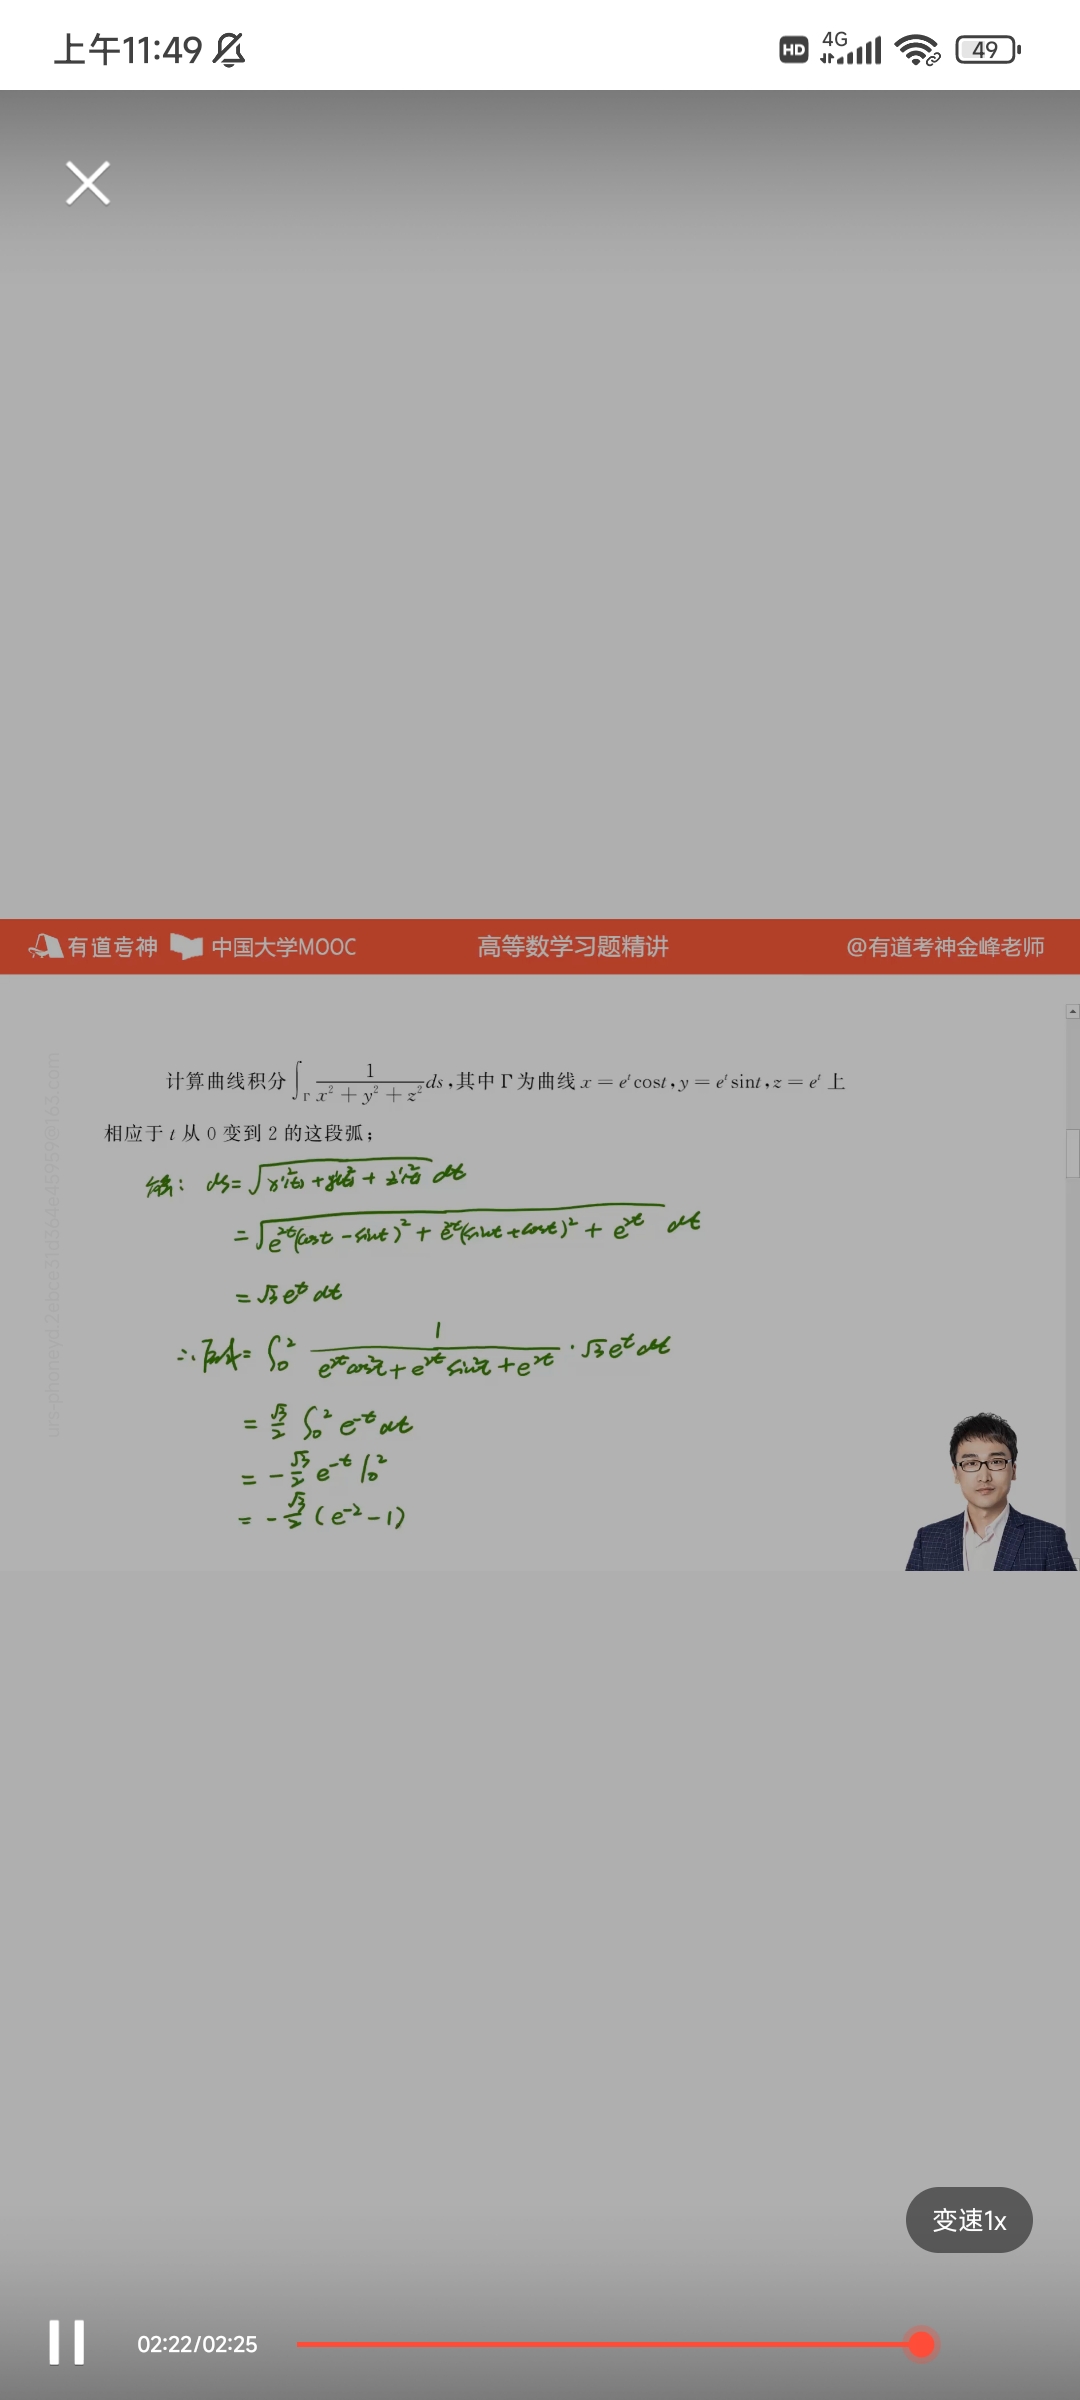 上午11:49 HD 4G 49
有道考神 中国大学MOOC 高等数学习题精讲 @有道考神金峰老师
计算曲线积分∫_Γ 1/(x²+y²+z²) ds,其中 Γ 为曲线 x = eᵗcost,y = eᵗsint,z = eᵗ 上
相应于 t 从 0 变到 2 的这段弧;
解: ds=√(x'²(t)+y'²(t)+z'²(t)) dt
=√(e²ᵗ(cost-sint)²+e²ᵗ(sint+cost)²+e²ᵗ) dt
=√3 eᵗ dt
∴原式=∫₀² 1/(e²ᵗcos²t+e²ᵗsin²t+e²ᵗ)·√3 eᵗ dt
=√3/2 ∫₀² e⁻ᵗ dt
=-√3/2 e⁻ᵗ|₀²
=-√3/2 (e⁻²-1)
变速1x
02:22/02:25